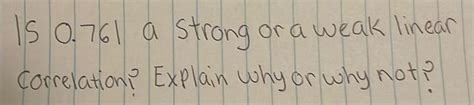 Is 0.761 a strong or a weak linear
correlation? Explain why or why not?